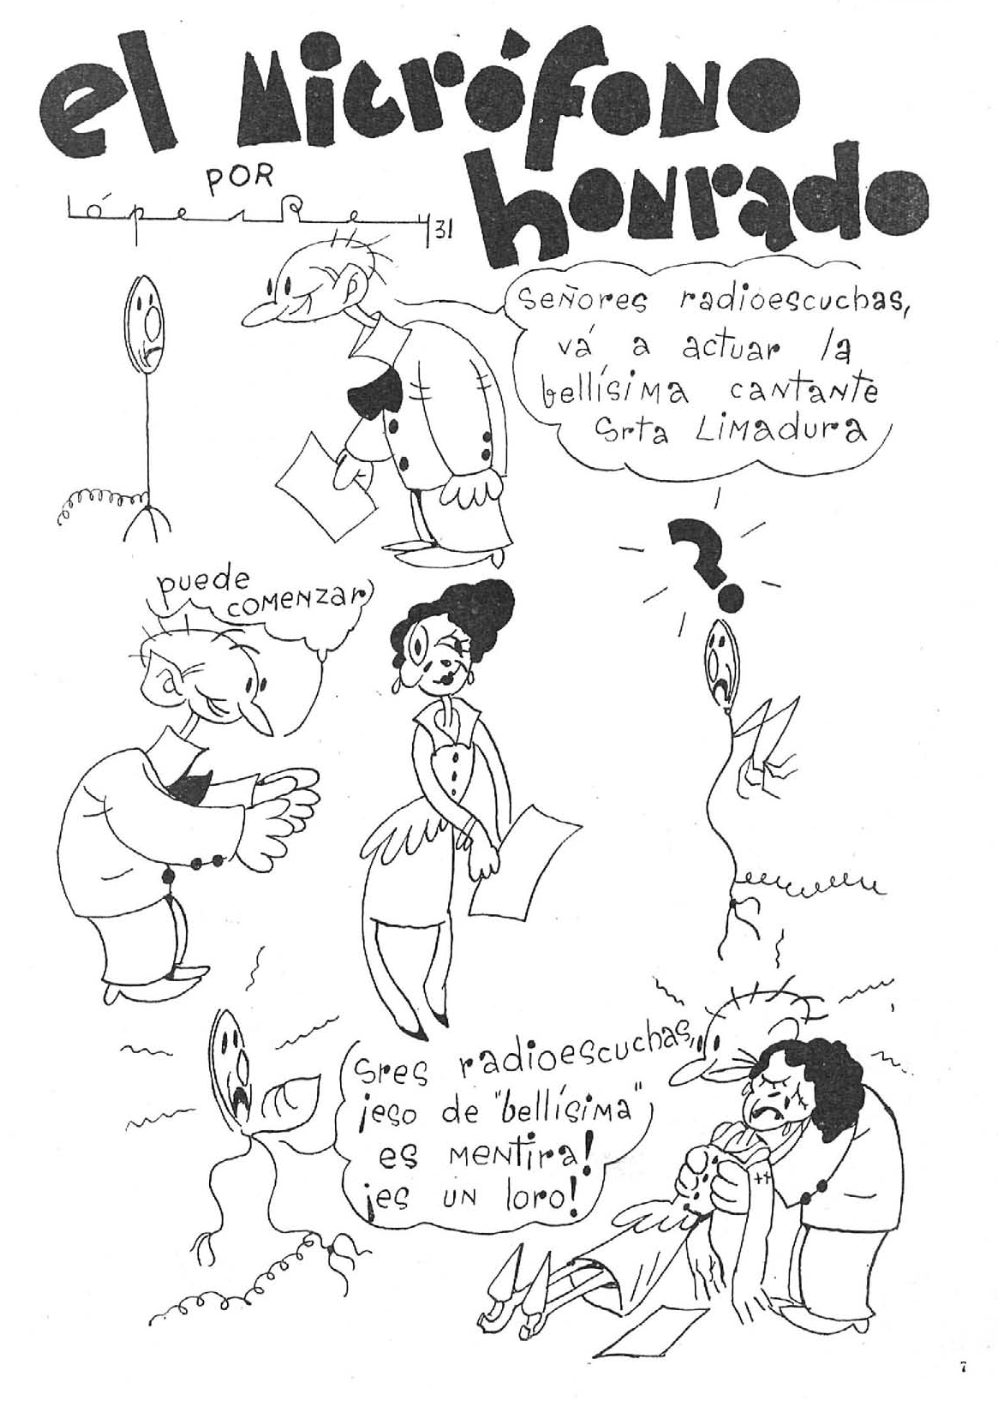 el Micrófono
honrado
POR
LópezRey
31
Señores radioescuchas,
vá a actuar la
bellísima cantante
Srta Limadura
puede
comenzar
Sres radioescuchas,
¡eso de "bellísima"
es mentira!
¡es un loro!
?
7